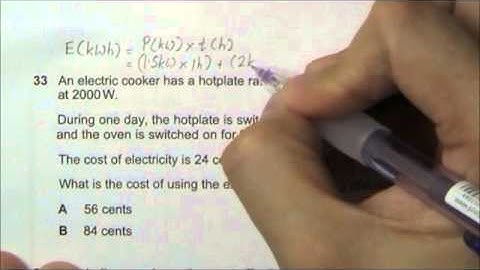 E(kWh) = P(kW) × t(h)
= (1.5kW × 1h) + (2k
33 An electric cooker has a hotplate
at 2000 W.
During one day, the hotplate is
and the oven is switched on for
The cost of electricity is 24
What is the cost of using the
A 56 cents
B 84 cents